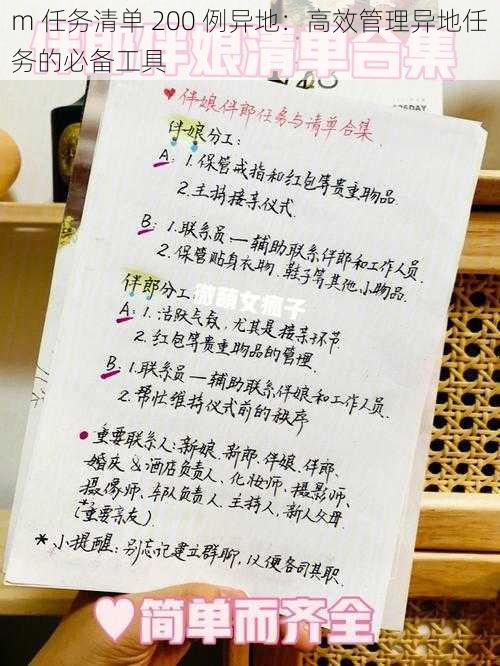 m 任务清单 200 例异地：高效管理异地任
务的必备工具
伴郎伴娘清单合集
26DAY
♥ 伴娘伴郎任务与清单合集
伴娘分工：
A：1.保管戒指和红包等贵重物品
2.主持接亲仪式.
B：1.联系员—辅助联系伴郎和工作人员.
2.保管贴身衣物.鞋子等其他小物品.
伴郎分工
微萌女疯子
A：1.活跃气氛，尤其是接亲环节
2.红包等贵重物品的管理.
B 1.联系员—辅助联系伴娘和工作人员.
2.帮忙维持仪式前的秩序
●重要联系人：新娘.新郎.伴娘.伴郎、
婚庆&酒店负责人、化妆师、摄影师、
摄像师、车队负责人.主持人，新人父母.
(重要亲友).
* 小提醒：别忘记建立群聊，以便各司其职
♥简单而齐全